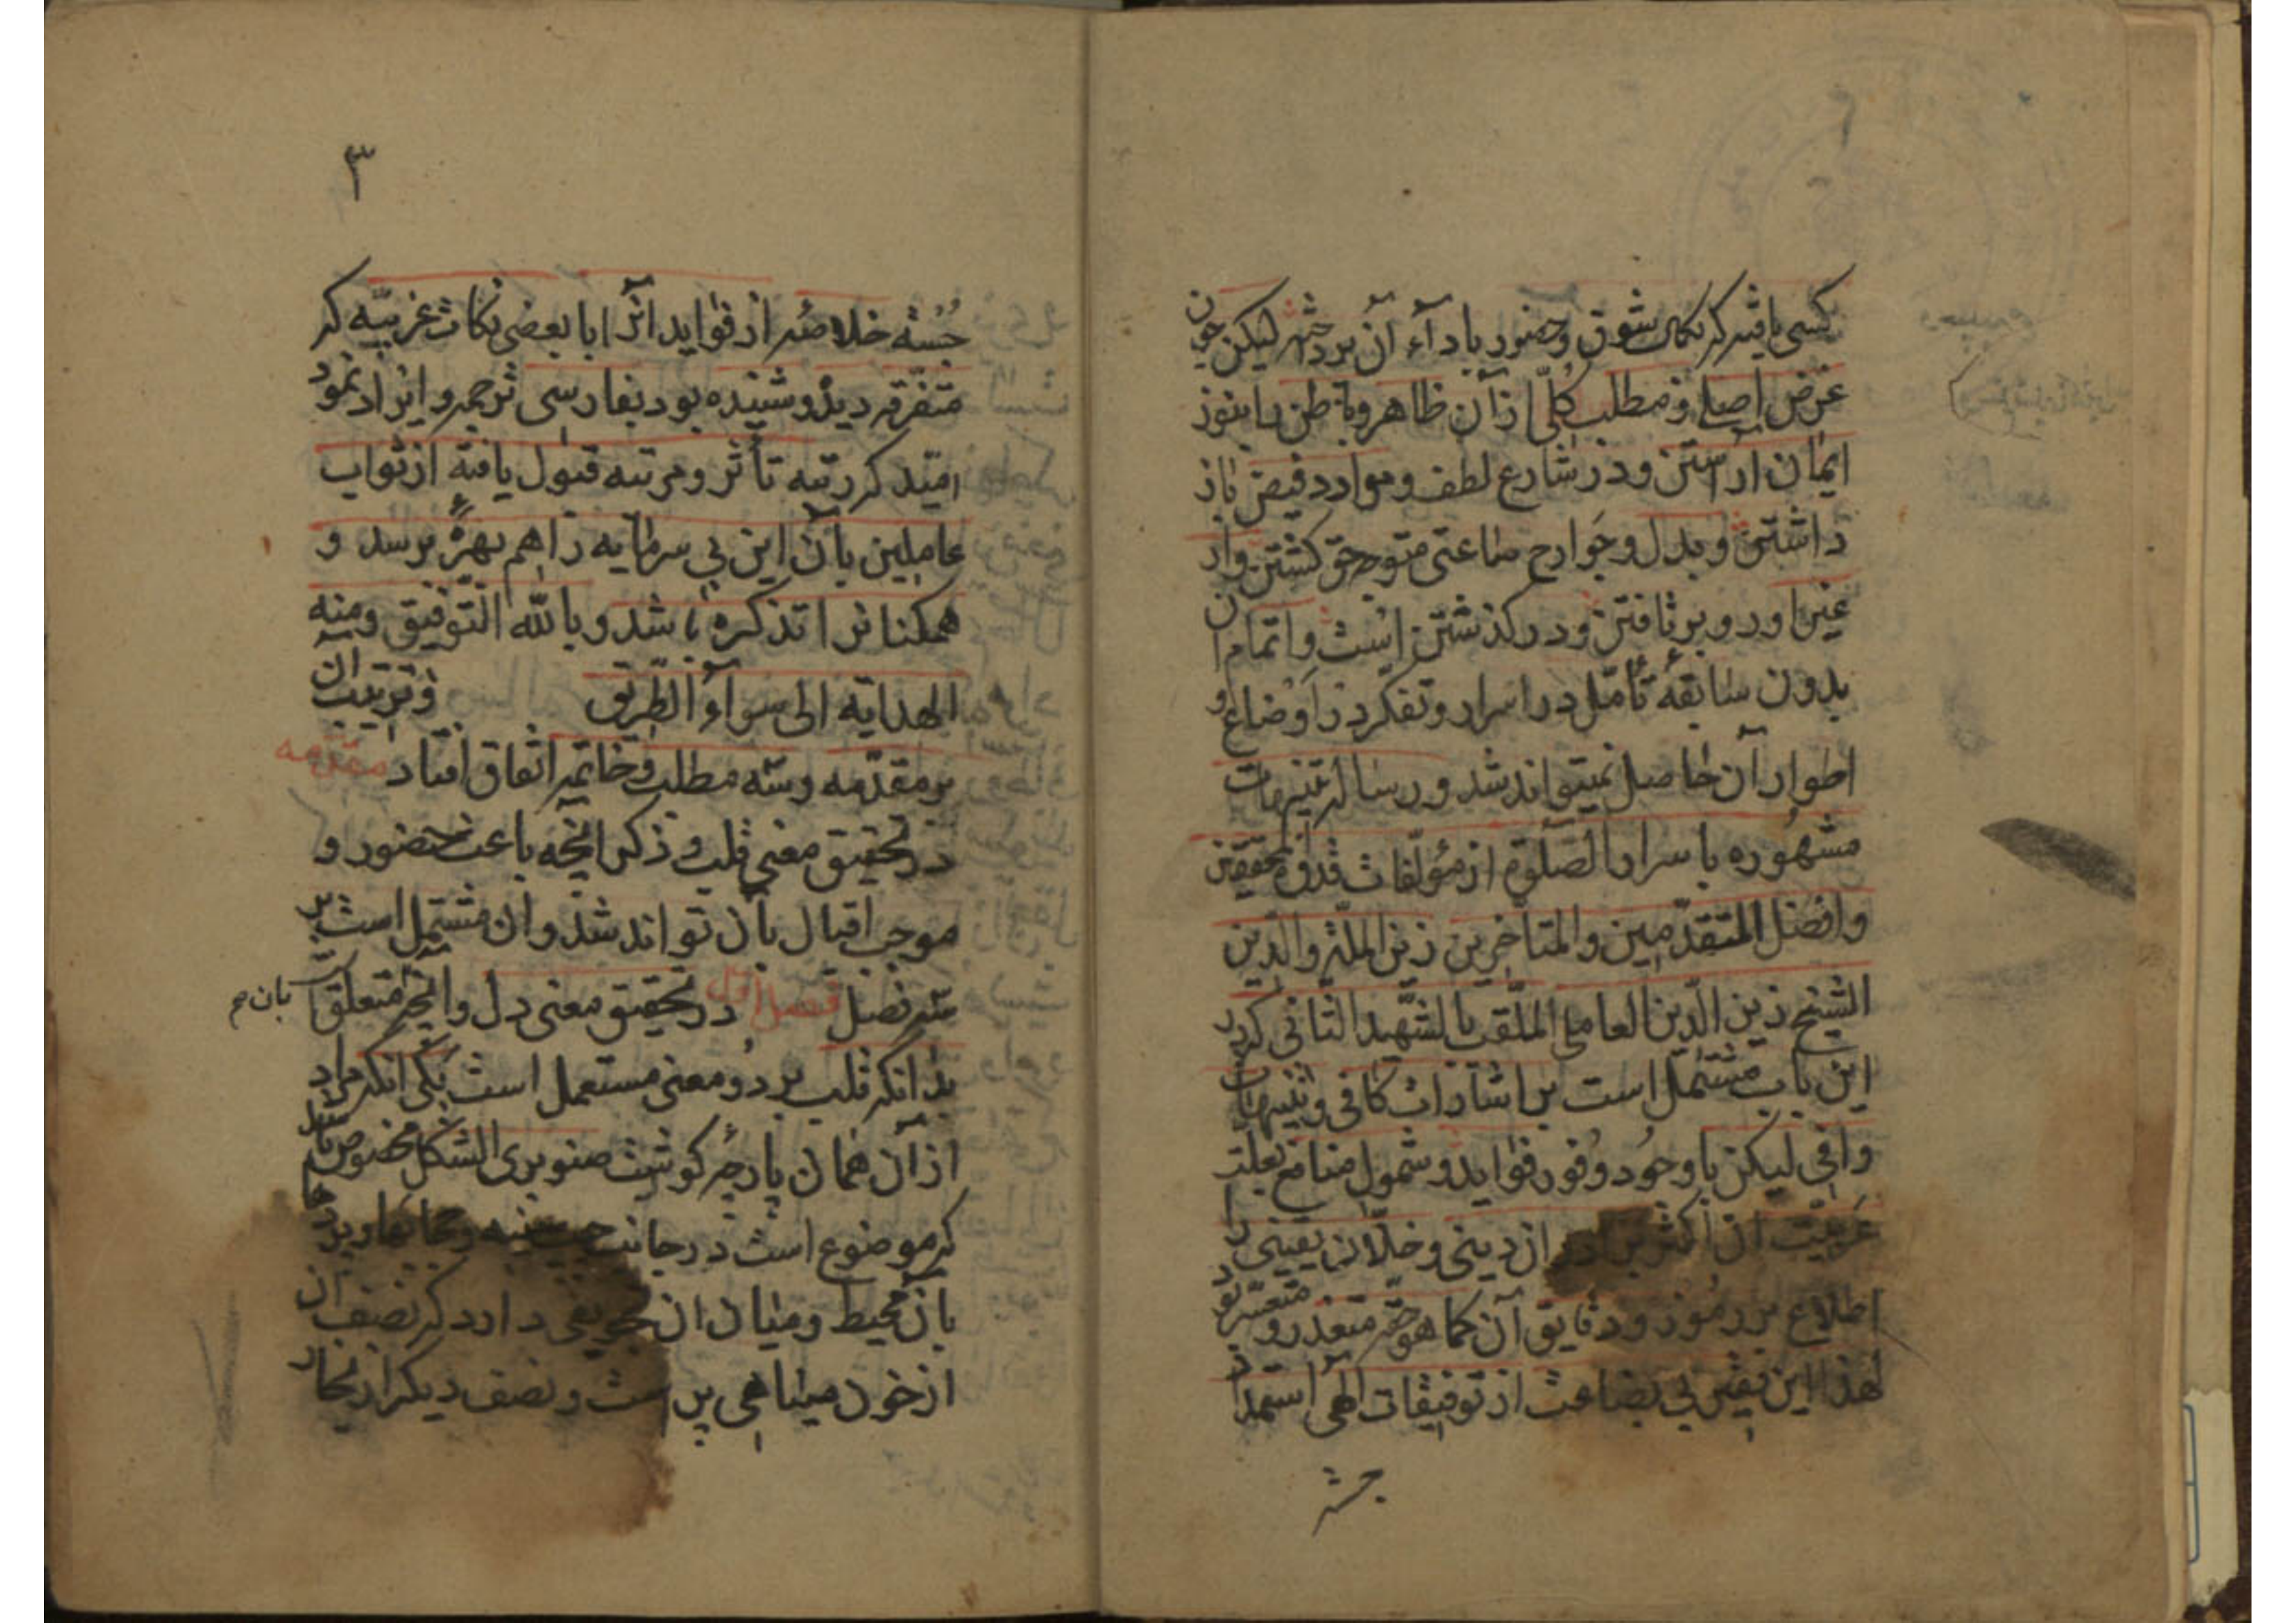 کسی باشد که بکمال شوق و حضور باداء آن پرداخته لیکن چون
غرض اصلی و مطلب کلّی از آن ظاهر و باطن را بنور
ایمان آراستن و در شارع لطف و موارد فیض باز
داشتن و بدل و جوارح ساعتی متوجه حق کشتن و از
غیر او رو بر تافتن و در کذشتن است و اتمام آن
بدون سابقهٔ تأمّل در اسرار و تفکر در اوضاع و
اطوار آن حاصل نمیتواند شد و رساله تنبیهات
مشهوره باسرار الصّلوة از مؤلّفات قدوة المحققین
وافضل المتقدّمین والمتاخرین زین الملّة والدّین
الشیخ زین الدّین العاملی الملّقب بالشّهید الثانی که در
این باب مشتمل است بر اشارات کافی و تنبیهات
وافی لیکن با وجود وفور فواید و شمول منافع بعلت
عربیّت آن اکثر برادران دینی و خلّان یقینی را
اطلاع بر رموز و دقایق آن کما هو حقه متعذر و متعسّر بود
لهذا این فقیر بی بضاعت از توفیقات الهی استمداد
جسته
۳
جسته خلاصه از فواید آنرا با بعضی نکات غریبه که
متفرقه دیده و شنیده بود بفارسی ترجمه و ایراد نمود
امید که رتبه تأثر و مرتبه قبول یافته از ثواب
عاملین بآن این بی سرمایه را هم بهرهٔ برسد و
همکنانرا تذکره باشد و بالله التّوفیق و منه
الهدایه الی سواء الطریق و ترتیب آن
بر مقدّمه و سه مطلب و خاتمه اتفاق افتاد مقدّمه
در تحقیق معنی قلب و ذکر آنچه باعث حضور و
موجب اقبال بآن تواند شد و آن مشتمل است بر
سه فصل فصل اول در تحقیق معنی دل و آنچه متعلق است
بآن
بدانکه قلب بر دو معنی مستعمل است یکی آنکه مراد
از آن همان پارچه کوشت صنوبری الشکل مخصوص
که موضوع است در جانب چپ سینه
بآن محیط و میان آن تجویفی دارد که نصف آن
از خون سیاهی پر است و نصف دیکر از بخار